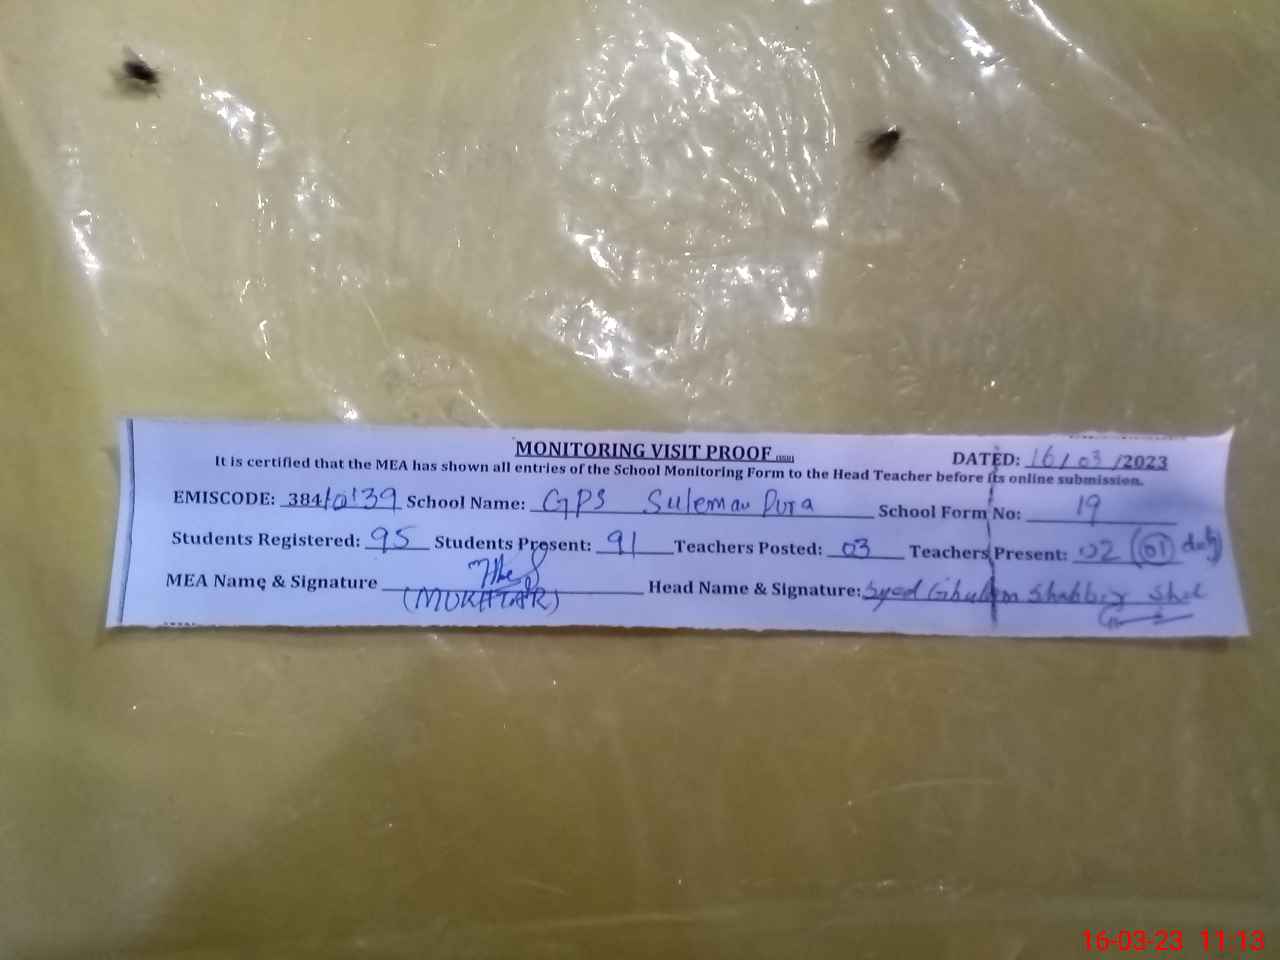 MONITORING VISIT PROOF
DATED: 16/03/2023
It is certified that the MEA has shown all entries of the School Monitoring Form to the Head Teacher before its online submission.
EMISCODE: 38410139 School Name: GPS Suleman Pura School Form No: 19
Students Registered: 95 Students Present: 91 Teachers Posted: 03 Teachers Present: 02 (01 duty)
MEA Name & Signature Head Name & Signature: Syed Ghulam Shabbir Shah
(MUKHTAR)
16-03-23 11:13